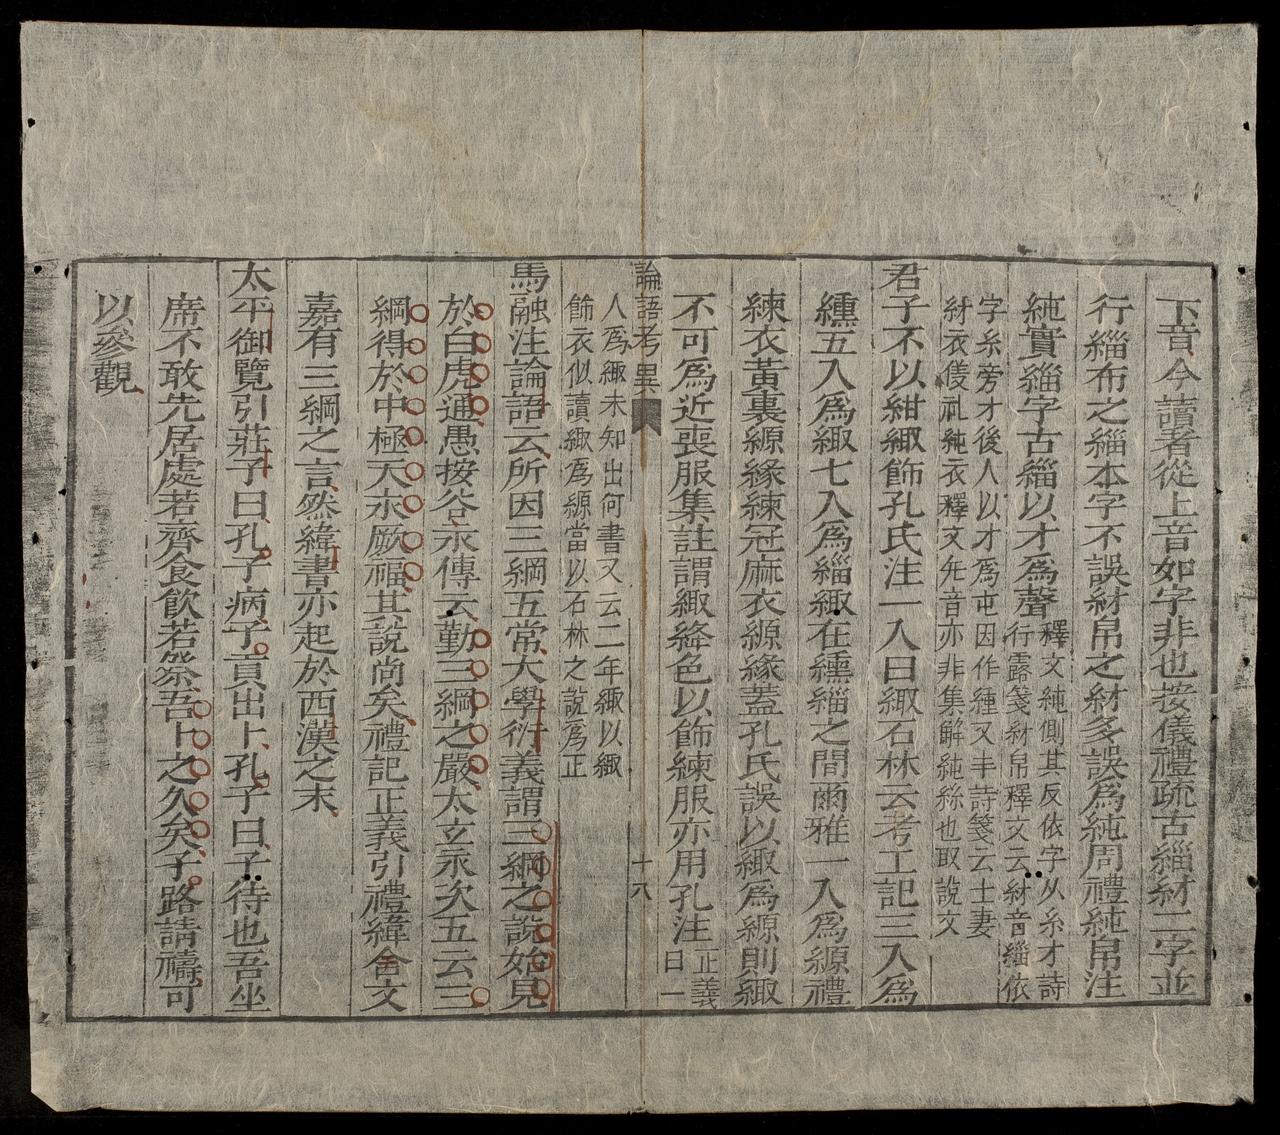 下音今讀者從上音如字非也按儀禮疏古緇紂二字並
行緇布之緇本字不誤紂帛之紂多誤爲純周禮純帛注
純實緇字古緇以才爲聲釋文純側其反依字从糸才詩
行露箋紂帛釋文云紂音緇依
字糸旁才後人以才爲屯因作純又丰詩箋云士妻
紂衣儀礼純衣釋文无音亦非集解純絲也取說文
君子不以紺緅飾孔氏注一入曰緅石林云考工記三入爲
纁五入爲緅七入爲緇緅在纁緇之間爾雅一入爲縓禮
練衣黃裏縓緣練冠麻衣縓緣蓋孔氏誤以緅爲縓則緅
不可爲近喪服集註謂緅絳色以飾練服亦用孔注正義
曰一
論語考異 十八
人爲緅未知出何書又云三年緅以緅
飾衣似讀緅爲縓當以石林之說爲正
馬融注論語云所因三綱五常大學衍義謂三綱之說始見
於白虎通愚按谷永傳云勤三綱之嚴太玄永次五云三
綱得於中極天永厥福其說尚矣禮記正義引禮緯含文
嘉有三綱之言然緯書亦起於西漢之末
太平御覽引莊子曰孔子病子貢出卜孔子曰子待也吾坐
席不敢先居處若齊食飲若祭吾卜之久矣子路請禱可
以參觀